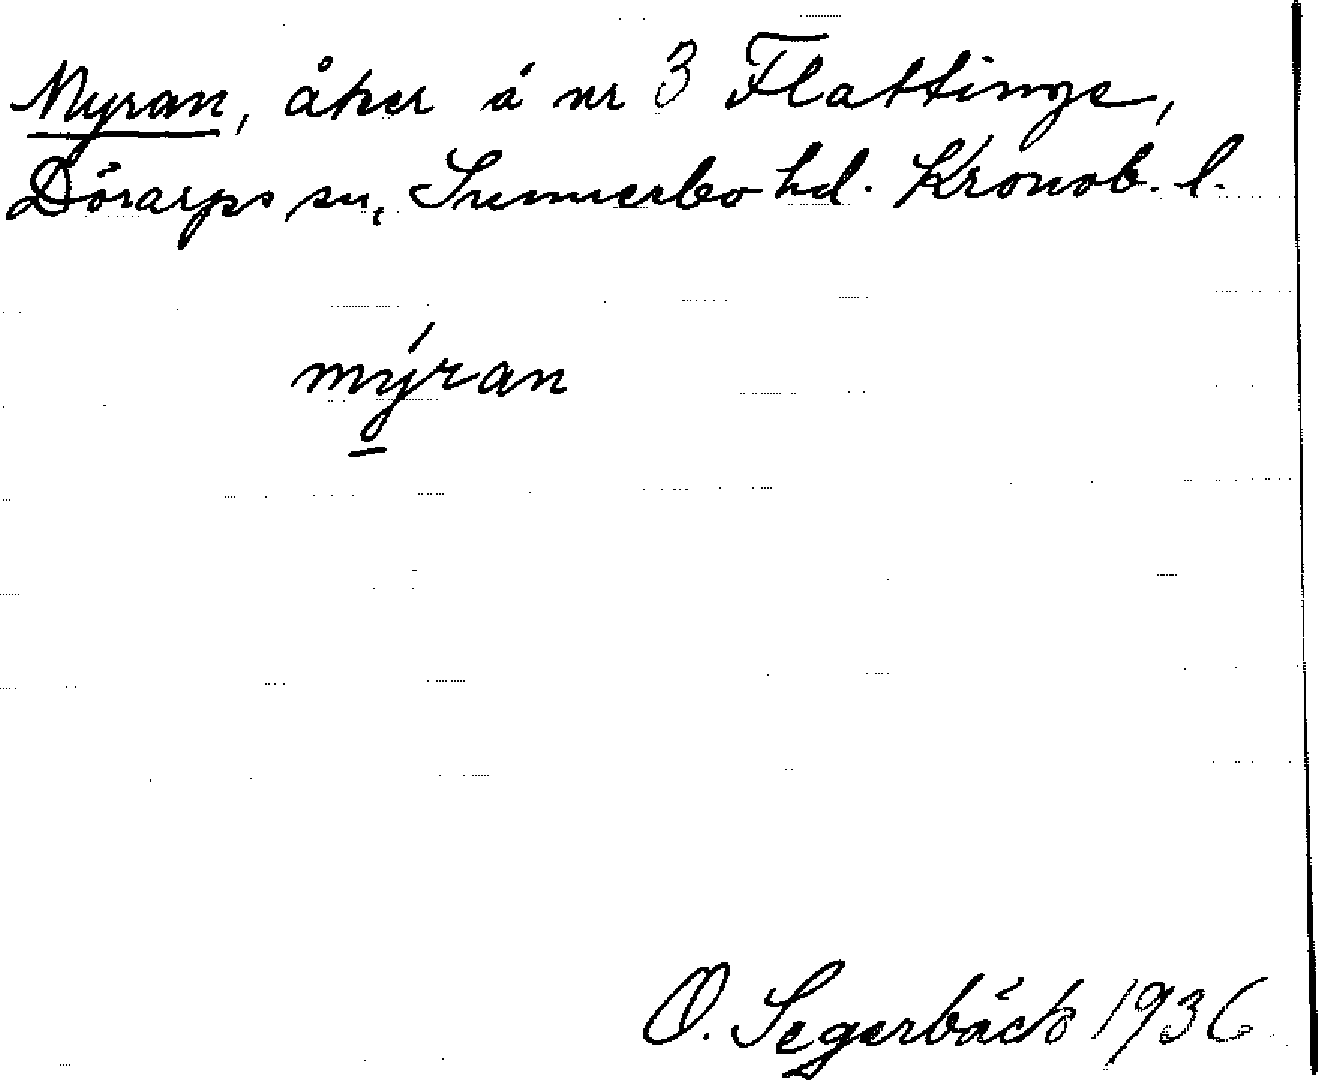 Myran, åker å nr 3 Flattinge,
Dörarps sn, Sunnerbo hd. Kronob. l.
mýran
O. Segerbäck 1936